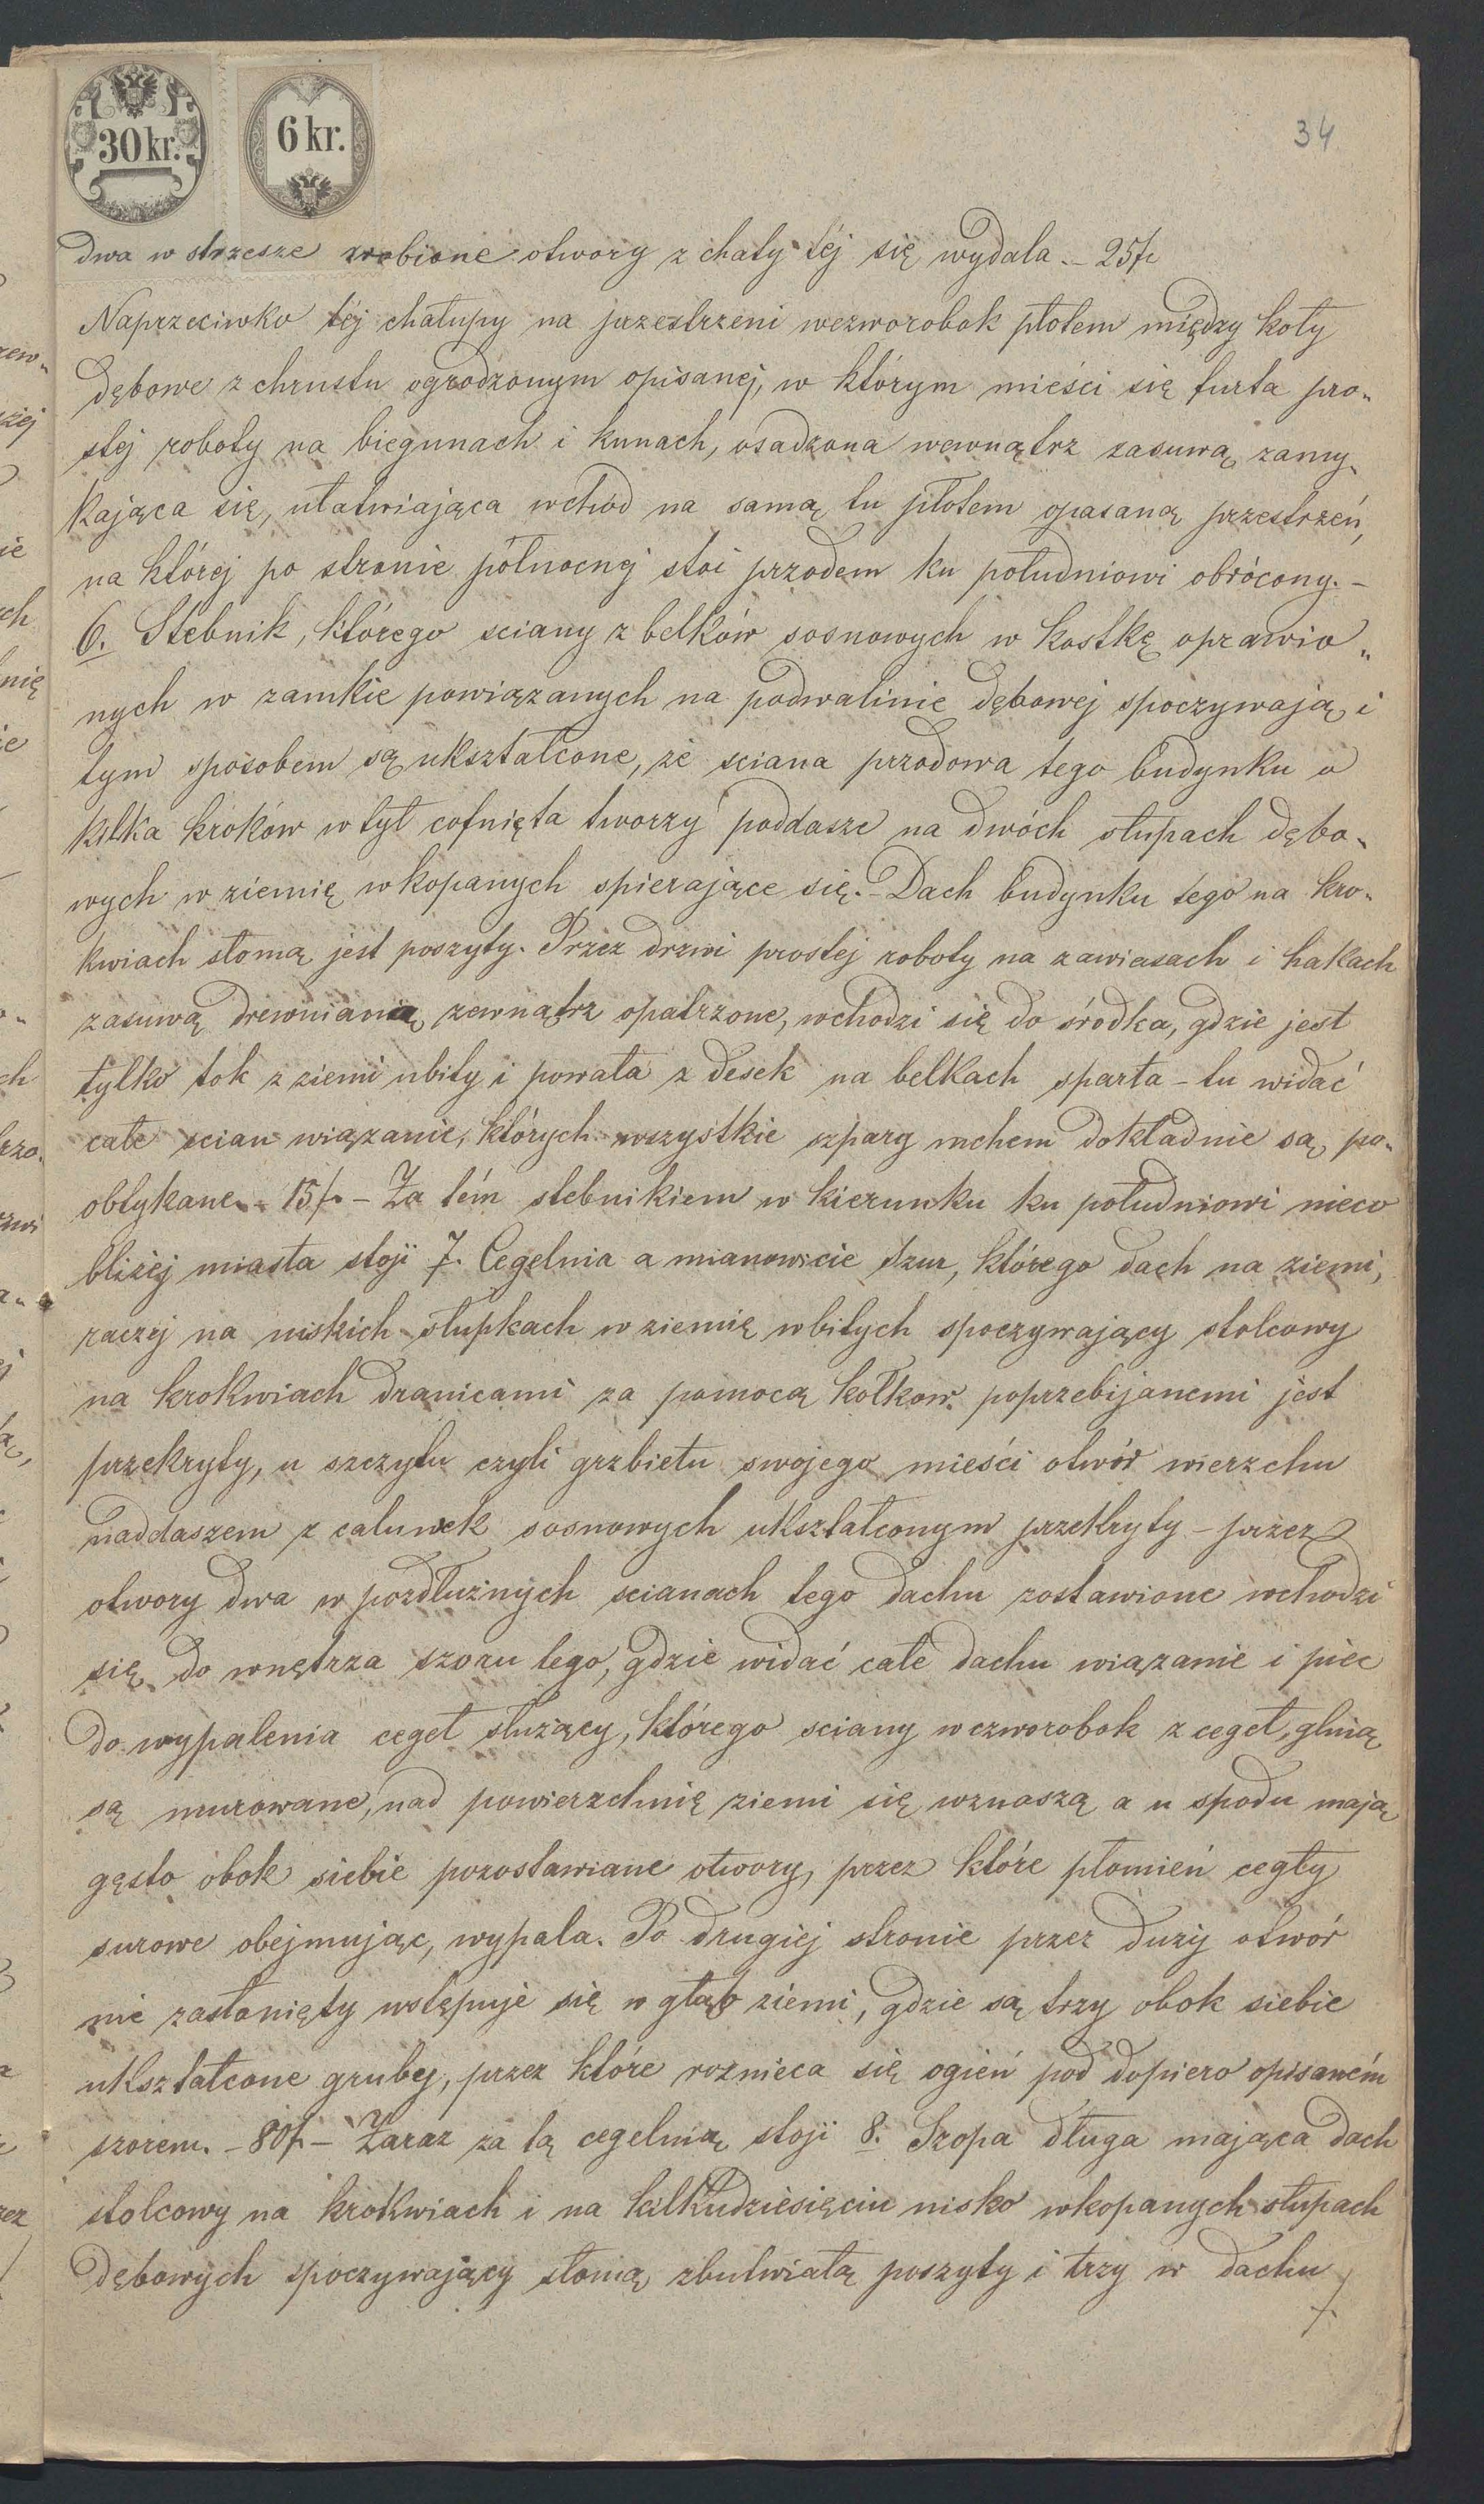 30 kr.
6 kr.
34
dwa w strzesze zrobione otwory z chaty téj się wydala. – 25 f
Naprzeciwko téj chałupy na przestrzeni wczworobok płotem między koły
dębowe z chrustu ogrodzonym opisanej, w którym mieści się furta pro„
stej roboty na biegunach i kunach, osadzona wewnątrz zasuwą zamy„
kająca się, ułatwiająca wchód na samą tu płotem opasaną przestrzeń,
na której po stronie północnej stoi przodem ku południowi obrócony. –
6. Stebnik, którego sciany z belków sosnowych w kostkę oprawio„
nych w zamkie powiązanych na podwalinie dębowej spoczywają i
tym sposobem są ukształcone, że sciana przodowa tego budynku o
kilka kroków w tył cofnięta tworzy poddasze na dwóch słupach dębo„
wych w ziemię wkopanych spierające się. – Dach budynku tego na kro„
kwiach słomą jest poszyty. Przez drzwi prostej roboty na zawiasach i hakach
zasuwą drewnianą zewnątrz opatrzone, wchodzi się do środka, gdzie jest
tylko tok z ziemi ubity i powała z desek na belkach sparta – tu widać
całe scian wiązanie, których wszystkie szpary mchem dokładnie są po„
obtykane. – 15 f. – Za tém stebnikiem w kierunku ku południowi nieco
bliżej miasta stoji 7. Cegelnia a mianowicie szur, którego dach na ziemi,
raczej na niskich słupkach w ziemię wbitych spoczywający stolcowy
na krokwiach dranicami za pomocą kołkow poprzebijanemi jest
przekryty, u szczytu czyli grzbietu swojego mieści otwór wierzchu
naddaszem z caluwek sosnowych ukształconym przekryty – przez
otwory dwa w pozdłużnych scianach tego dachu zostawione wchodzi
się do wnętrza szoru tego, gdzie widać całe dachu wiązanie i piec
do wypalenia cegeł służący, którego sciany w czworobok z cegeł, glnią
są murowane, nad powierzchnię ziemi się wznaszą a u spodu mają
gęsto obok siebie pozostawiane otwory, przez które płomień cegły
surowe obejmując, wypala. Po drugiéj stronie przez duży otwór
nie zasłonięty wstępuje się w głąb ziemi, gdzie są trzy obok siebie
ukształcone gruby, przez które roznieca się ogień pod dopiero opisaném
szorem. – 80 f. – Zaraz za tą cegelnią stoji 8. Szopa długa mająca dach
stolcowy na krokwiach i na kilkudziesięciu nisko wkopanych słupach
dębowych spoczywający słomą zbutwiałą poszyty i trzy w dachu